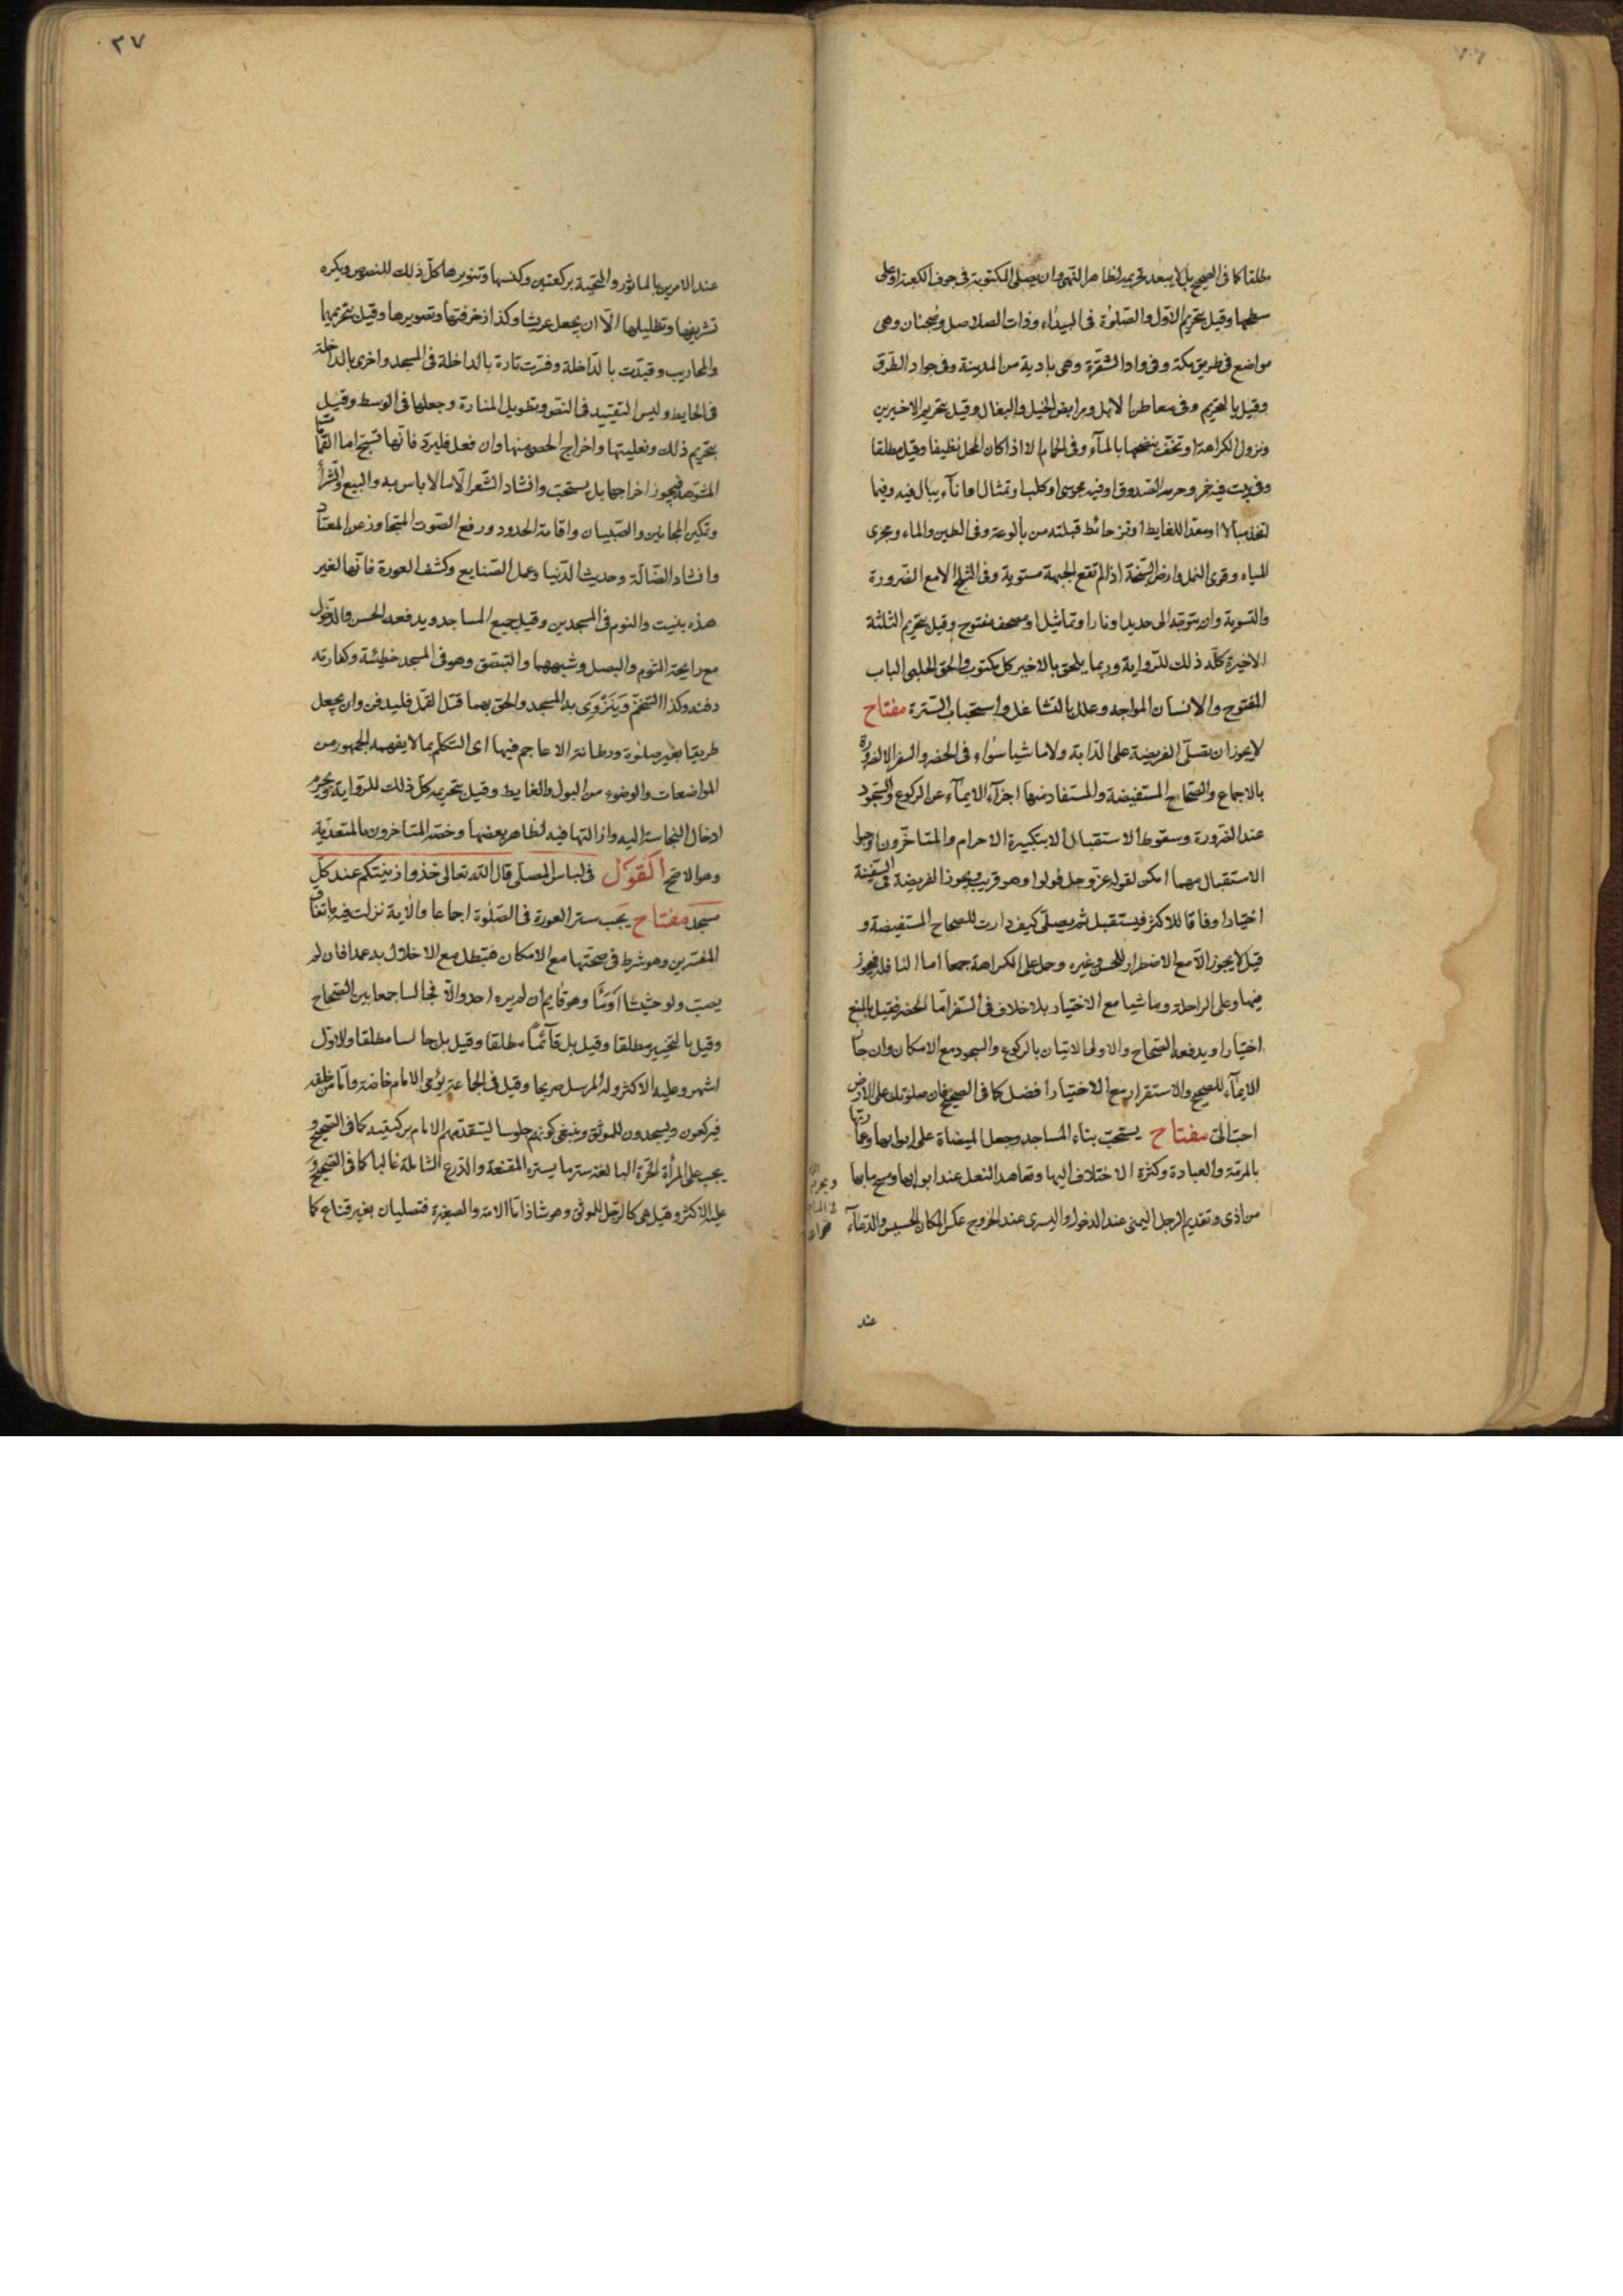 مطلقا كما في الصحيح بل لا يبعد تحريمه لظاهر النهى وان يصلى المكتوبة في جوف الكعبة او على
سطحها وقيل بتحريم الاول والصلوة في البيداء وذات الصلاصل وضجنان وهى
مواضع في طريق مكة وفى وادا الشقرة وهى بادية من المدينة وفى جواد الطرق
وقيل بالتحريم وفى معاطن الابل ومرابض الخيل والبغال وقيل بتحريم الاخيرين
وتزول الكراهة او تخف بنضحها بالمآء وفى الحمام الا اذا كان المحل نظيفا وقيل مطلقا
وفى بيت فيه خمر وحرمه الصدوق او فيه مجوسى او كلب او تمثال او انآء يبال فيه وفيما
اتخذ مبالا او معدا للغايط او نز حائط قبلته من بالوعة وفى الطين والماء ومجرى
المياه وقرى النمل وارض السبخة اذا لم تقع الجبهة مستوية وفى الثلج الا مع الضرورة
والتسوية وان يتوجه الى حديد او نار او تماثيل او مصحف مفتوح وقيل بتحريم الثلثة
الاخيرة كله ذلك للرواية وربما يلحق بالاخير كل مكتوب والحق الحلبى الباب
المفتوح والانسان المواجه وعلل بالتشاغل واستحباب السترة مفتاح
لا يجوز ان تصلى الفريضة على الدابة ولا ماشيا سوآء في الحضر والسفر الا لضرورة
بالاجماع والصحاح المستفيضة والمستفاد منها اجزآء الايمآء عن الركوع والسجود
عند الضرورة وسقوط الاستقبال الا بتكبيرة الاحرام والمتاخرون اوجبوا
الاستقبال مهما امكن لقوله عز وجل فولوا وهو قريب ويجوز الفريضة في السفينة
اختيارا وفاقا للاكثر فيستقبل ثم يصلى كيف دارت للصحاح المستفيضة و
قيل لا يجوز الا مع الاضطرار للحسن وغيره وحمل على الكراهة جمعا اما النافلة فيجوز
فيها وعلى الراحلة وماشيا مع الاختيار بلا خلاف في السفر اما الحضر فقيل بالمنع
اختيارا ويدفعه الصحاح والاولى الاتيان بالركوع والسجود مع الامكان وان جاز
الايمآء للصحيح والاستقرار مع الاختيار افضل كما في الصحيح فان صلوتك على الارض
احب الى مفتاح يستحب بناء المساجد وجعل الميضاة على ابوابها وعمارتها
بالمرمة والعبادة وكثرة الاختلاف اليها وتعاهد النعل عند ابوابها ومسح ما بها
من اذى وتقديم الرجل اليمنى عند الدخول واليسرى عند الخروج عكس المكان الخسيس والدعآء
عند
٢٧
عند الامرين بالماثور والتحية بركعتين وكنسها وتنويرها كل ذلك للنصوص ويكره
تشريفها وتظليلها الا ان يجعل عريشا وكذا زخرفتها وتصويرها وقيل بتحريمهما
والمحاريب وقيدت بالداخلة وفسرت تارة بالداخلة في المسجد واخرى بالداخلة
في الحايط وليس التقييد في النص وتطويل المنارة وجعلها في الوسط وقيل
بتحريم ذلك وتعليتها واخراج الحصى منها وان فعل فليرد فانها تسبح اما القمامة
المشوهة فيجوز اخراجها بل يستحب وانشاد الشعر الا ما لا باس به والبيع والشرآء
وتمكين المجانين والصبيان واقامة الحدود ورفع الصوت المتجاوز عن المعتاد
وانشاد الضالة وحديث الدنيا وعمل الصنايع وكشف العورة فانها لغير
هذه بنيت والنوم في المسجدين وقيل جميع المساجد ويدفعه الحسن والدخول
مع رايحة الثوم والبصل وشبههما والتبصق وهو في المسجد خطيئة وكفارته
دفنه وكذا التنخم وينزوى به المسجد والحق بهما قتل القمل فليدفن وان يجعل
طريقا بغير صلوة ورطانة الاعاجم فيها اى التكلم بما لا يفهمه الجمهور من
المواضعات والوضوء من البول والغايط وقيل بتحريمه كل ذلك للرواية ويحرم
ادخال النجاسة اليه وازالتها فيه لظاهر بعضها وخصه المتاخرون بالمتعدية
وهو الاصح القول في لباس المصلى قال الله تعالى خذوا زينتكم عند كل
مسجد مفتاح يجب ستر العورة في الصلوة اجماعا والاية نزلت فيه باتفاق
المفسرين وهو شرط في صحتها مع الامكان فتبطل مع الاخلال به عمدا فان لم
يصب ولو حشيشا اومأ وهو قايم ان لم يره احد والا فجالسا جمعا بين الصحاح
وقيل بالتخيير مطلقا وقيل بل قآئما مطلقا وقيل بل جالسا مطلقا والاول
اشهر وعليه الاكثر وله المرسل صريحا وقيل في الجماعة يؤمى الامام خاصة واما من خلفه
فيركعون ويسجدون للموثق وينبغى كونهم جلوسا ليتقدمهم الامام بركبتيه كما في الصحيح و
يجب على المرأة الحرة البالغة ستر ما يستره المقنعة والدرع الشاملة غالبا كما في الصحيح و
عليه الاكثر وقيل هى كالرجل للموثق وهو شاذ اما الامة والصغيرة فتصليان بغير قناع كما